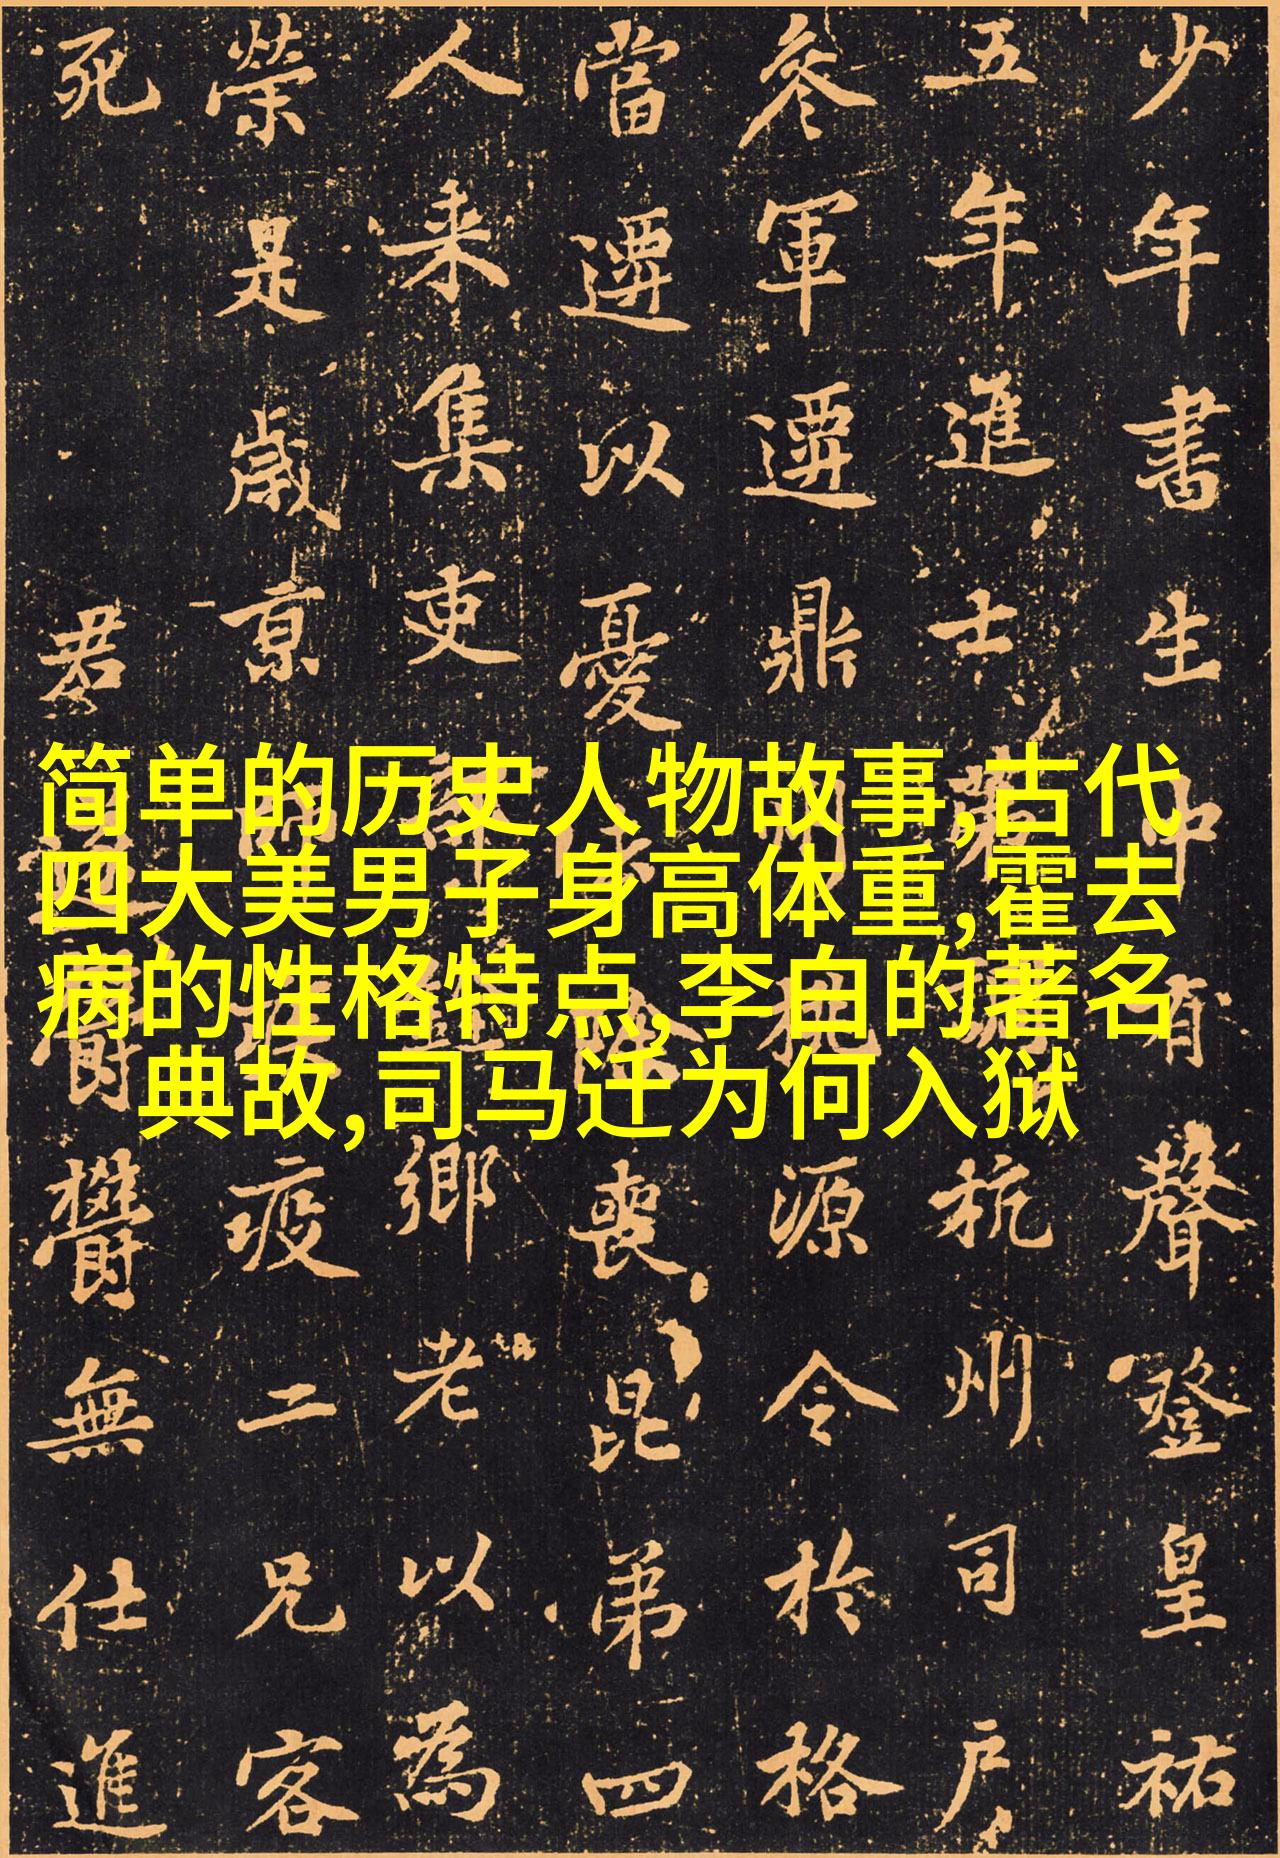 少年書生中有聲登皇祐
五年進士第 杭州司户
參軍遷鼎州 源令於格
當遷以憂 喪昆弟四
人来集吏 鄉老以為
榮是歲京 疫二兄客
死 君 欝欝無仕進
简单的历史人物故事,古代
四大美男子身高体重,霍去
病的性格特点,李白的著名
典故,司马迁为何入狱